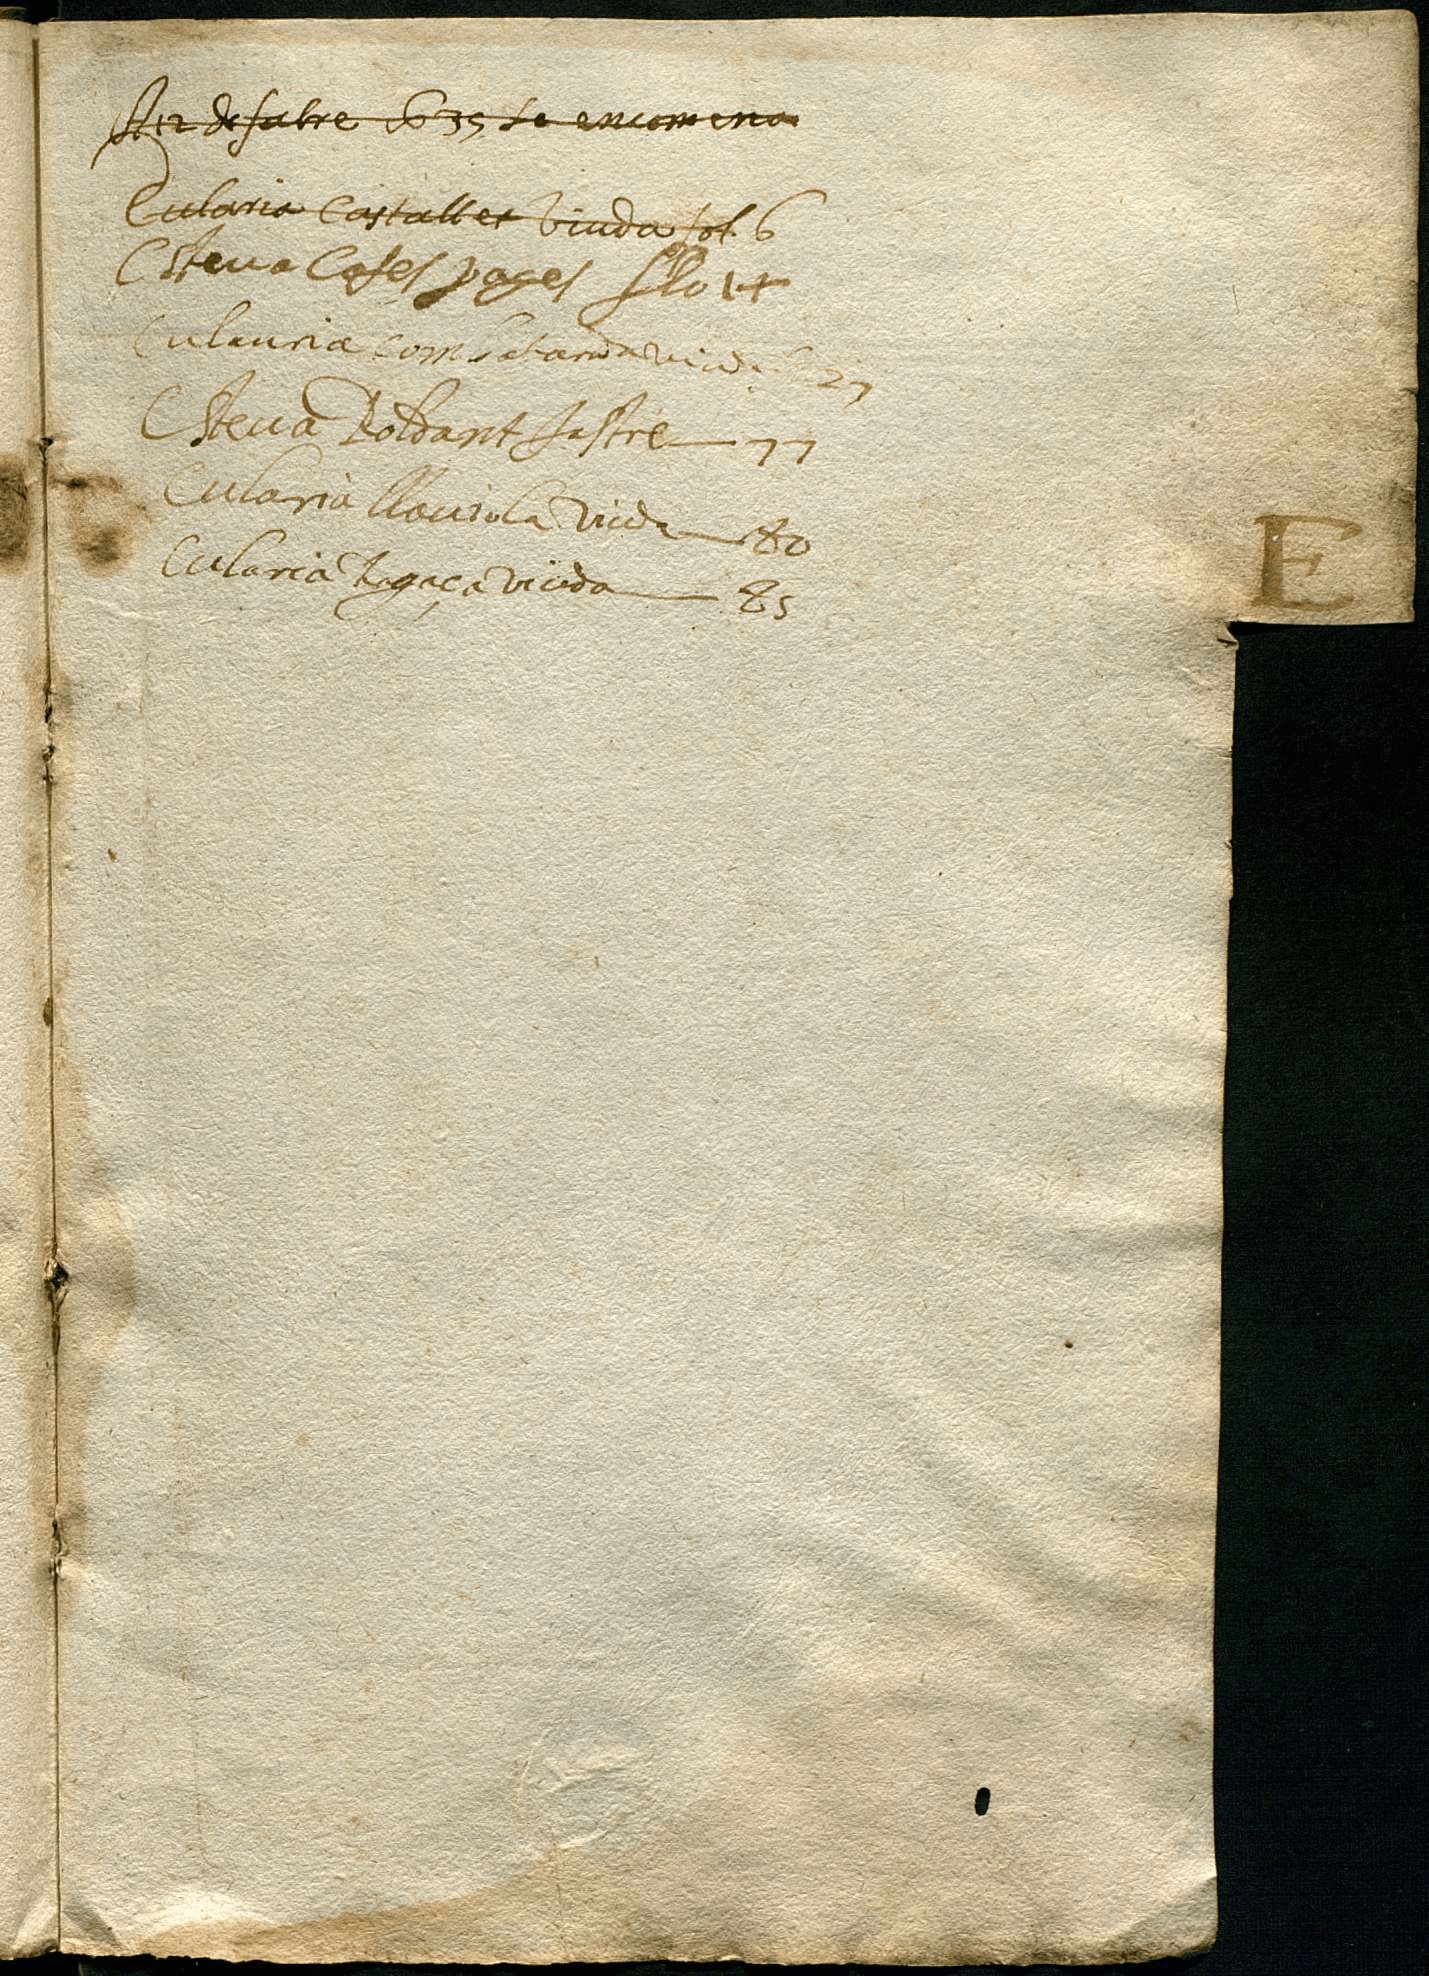 A 12 de fabre 1635 se encomena
Eularia Castaller viuda fol. 6
Esteva Cases pages folio 14
Eulauria viuda 27
Esteva Roldant sastre — 77
Eularia Llauiola viuda — 80
Eularia Ragaça viuda — 85
E